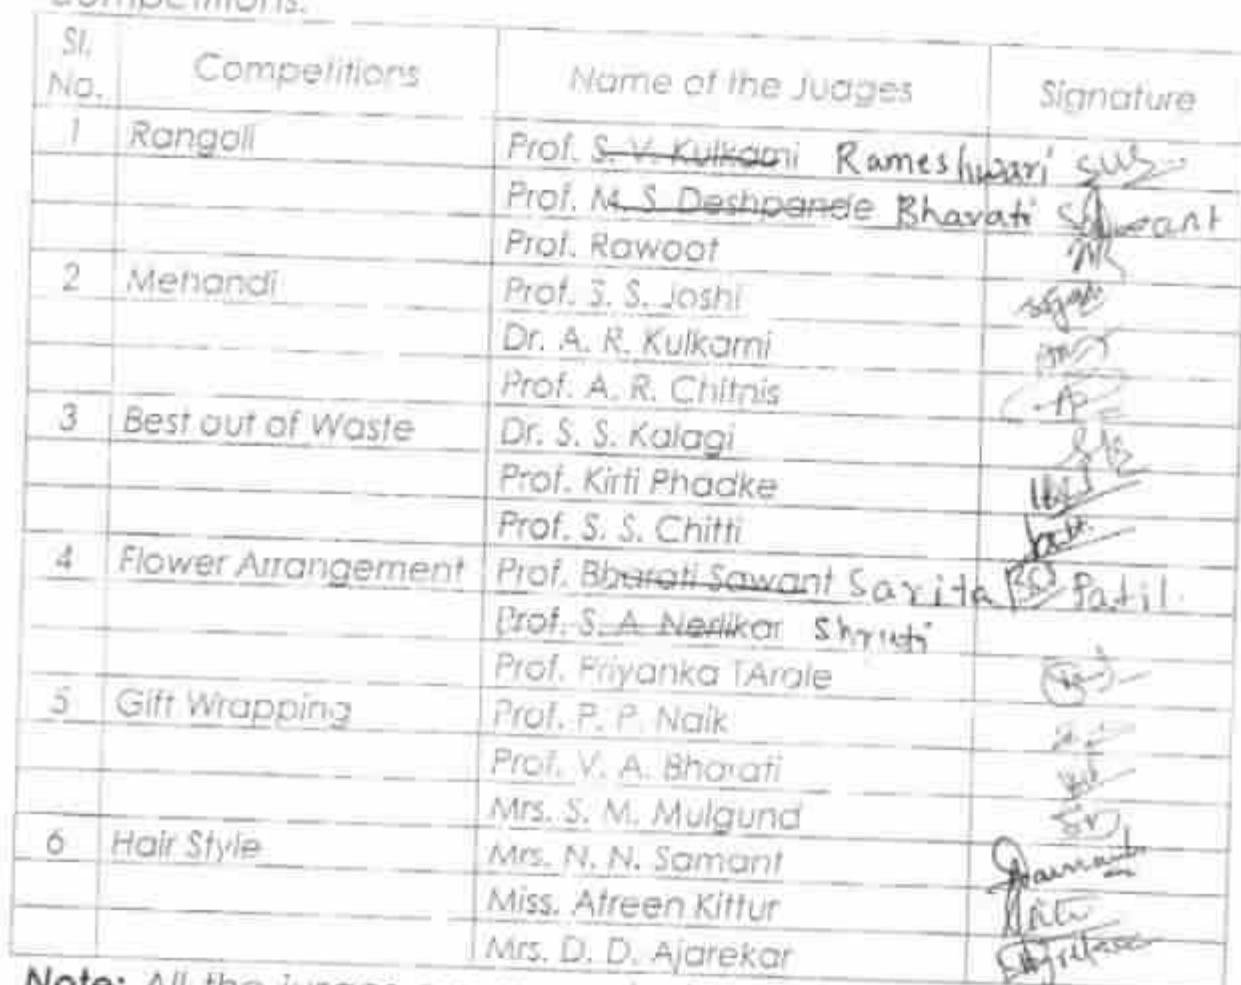 Competitions.
Sl. No. Competitions Name of the Juages Signature
1 Rangoli Prof. S. V. Kulkarni Rameshwari
Prof. M. S. Deshpande Bharati Sawant
Prof. Rawoot
2 Mehandi Prof. S. S. Joshi
Dr. A. R. Kulkarni
Prof. A. R. Chitnis
3 Best out of Waste Dr. S. S. Kalagi
Prof. Kirti Phadke
Prof. S. S. Chitti
4 Flower Arrangement Prof. Bharati Sawant Sarita Patil
Prof. S. A. Nerlikar Shruti
Prof. Priyanka TArale
5 Gift Wrapping Prof. P. P. Naik
Prof. V. A. Bharati
Mrs. S. M. Mulgund
6 Hair Style Mrs. N. N. Samant
Miss. Afreen Kittur
Mrs. D. D. Ajarekar
Note: All the